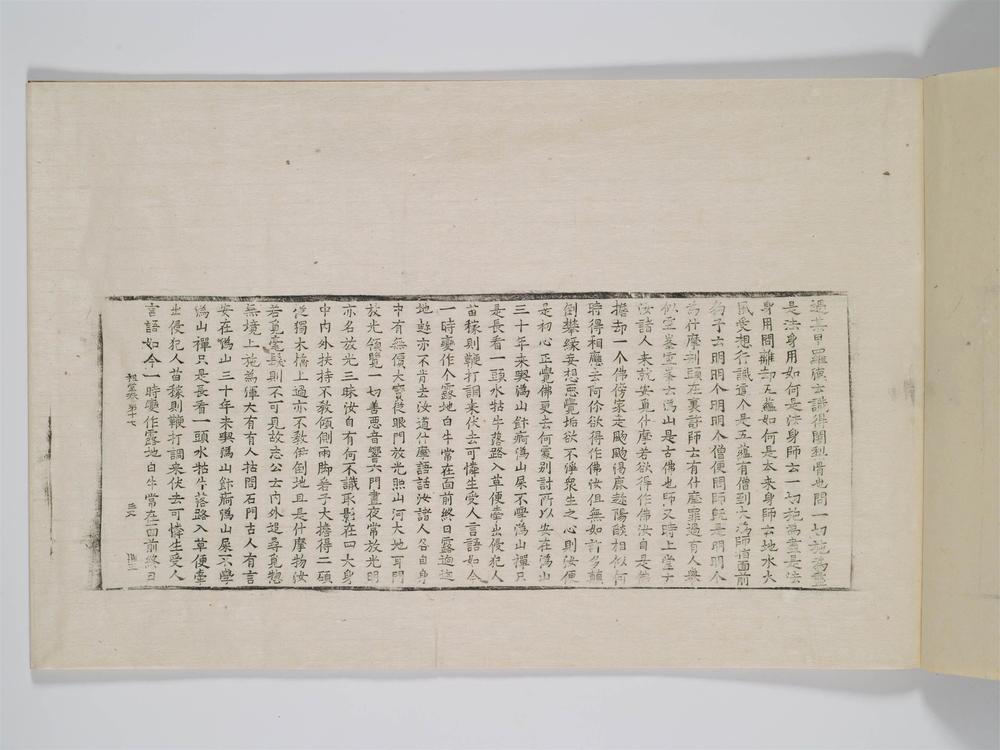 過某甲羅漢云識得闍梨骨也問一切施為盡
是法身用如何是法身師云一切施為盡是法
身用問離却五蘊如何是本来身師云地水火
風受想行識這个是五蘊有僧到大溈師指面前
狗子云明明个明明个僧便問師旣是明明个
為什摩刺頭在裏許師云有什摩罪過有人舉
似雪峯雪峯云溈山是古佛也師又時上堂云
汝諸人来就安覓什摩若欲得作佛汝自是佛
擔却一个佛傍家走颰颰渴鹿趂陽燄相似何
時得相應去阿你欲得作佛汝但無如許多顛
倒攀緣妄想惡覺垢欲不淨衆生之心則汝便
是初心正覺佛更去何處別討所以安在溈山
三十年来喫溈山飯痾溈山屎不學溈山禪只
是長看一頭水牯牛落路入草便牽出侵犯人
苗稼則鞭打調来伏去可憐生受人言語如今
一時變作个露地白牛常在面前終日露迥迥
地趂亦不肯去汝道什摩語話汝諸人各自身
中有無價大寶從眼門放光照山河大地耳門
放光領覽一切善惡音響六門晝夜常放光明
亦名放光三昧汝自有何不識取影在四大身
中內外扶持不教傾側兩脚者子大擔得二碩
從獨木橋上過亦不教伊倒地且是什摩物汝
若覓毫髮則不可見故志公云內外追尋覓惣
無境上施為渾大有有人拈問石門古人有言
安在溈山三十年来喫溈山飯痾溈山屎不學
溈山禪只是長看一頭水牯牛落路入草便牽
出侵犯人苗稼則鞭打調来伏去可憐生受人
言語如今一時變作露地白牛常在面前終日
祖堂集第十七